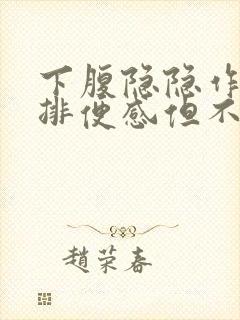 下腹隐隐作
排便感但不
趙荣春